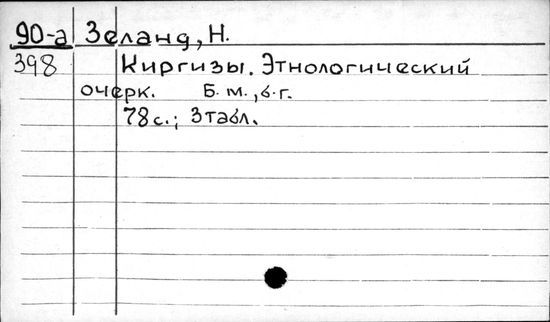 90-а Зеланд, Н.
398 Киргизы. Этнологический
очерк. Б. м., б. г.
78 с.; 3 табл.